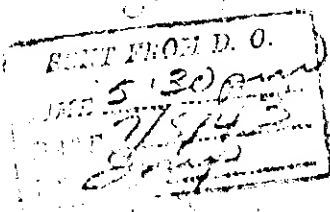 SENT FROM D. O.
TIME 5:30 pm
DATE 7/8/43